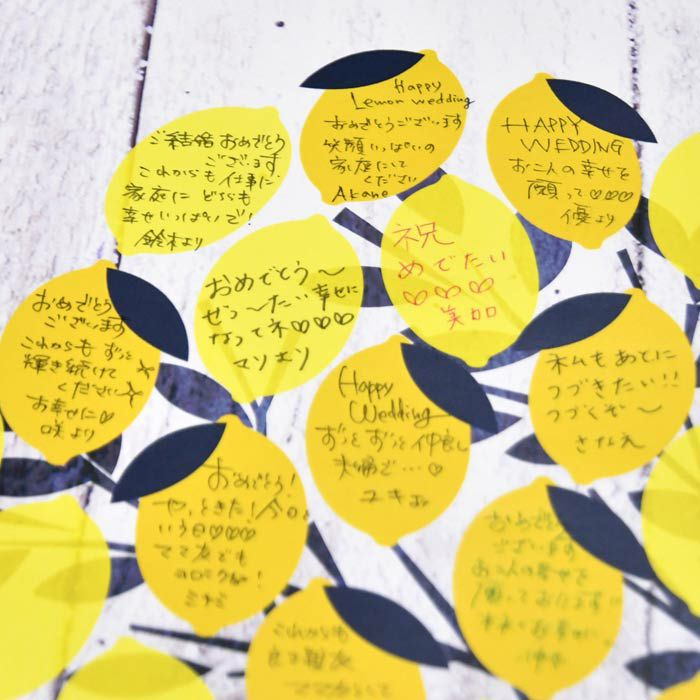 Happy
Lemon wedding
おめでとうございます
笑顔いっぱいの
家庭にして
ください
Akane
HAPPY
WEDDING
お二人の幸せを
願って♡♡♡
優より
ご結婚おめでとう
ございます
これからも仕事に
家庭にどちらも
幸せいっぱいで!
鈴木より
祝
めでたい
♡♡♡
美品
おめでとう〜
ぜっ〜たい幸せに
なってネ♡♡♡
マリエり
おめでとう
ございます
これからもずっと
輝き続けて
ください
お幸せに♡
咲より
Happy
Wedding
ずっとずっと仲良し
夫婦で…♡
ユキより
私もあとに
つづきたい!!
つづくぞ〜
さなえ
おめでとう!
やっときた!今日と
いう日♡♡♡
ミナミ
おめでとう
ございます
お二人の幸せを
願っております!!
これからも